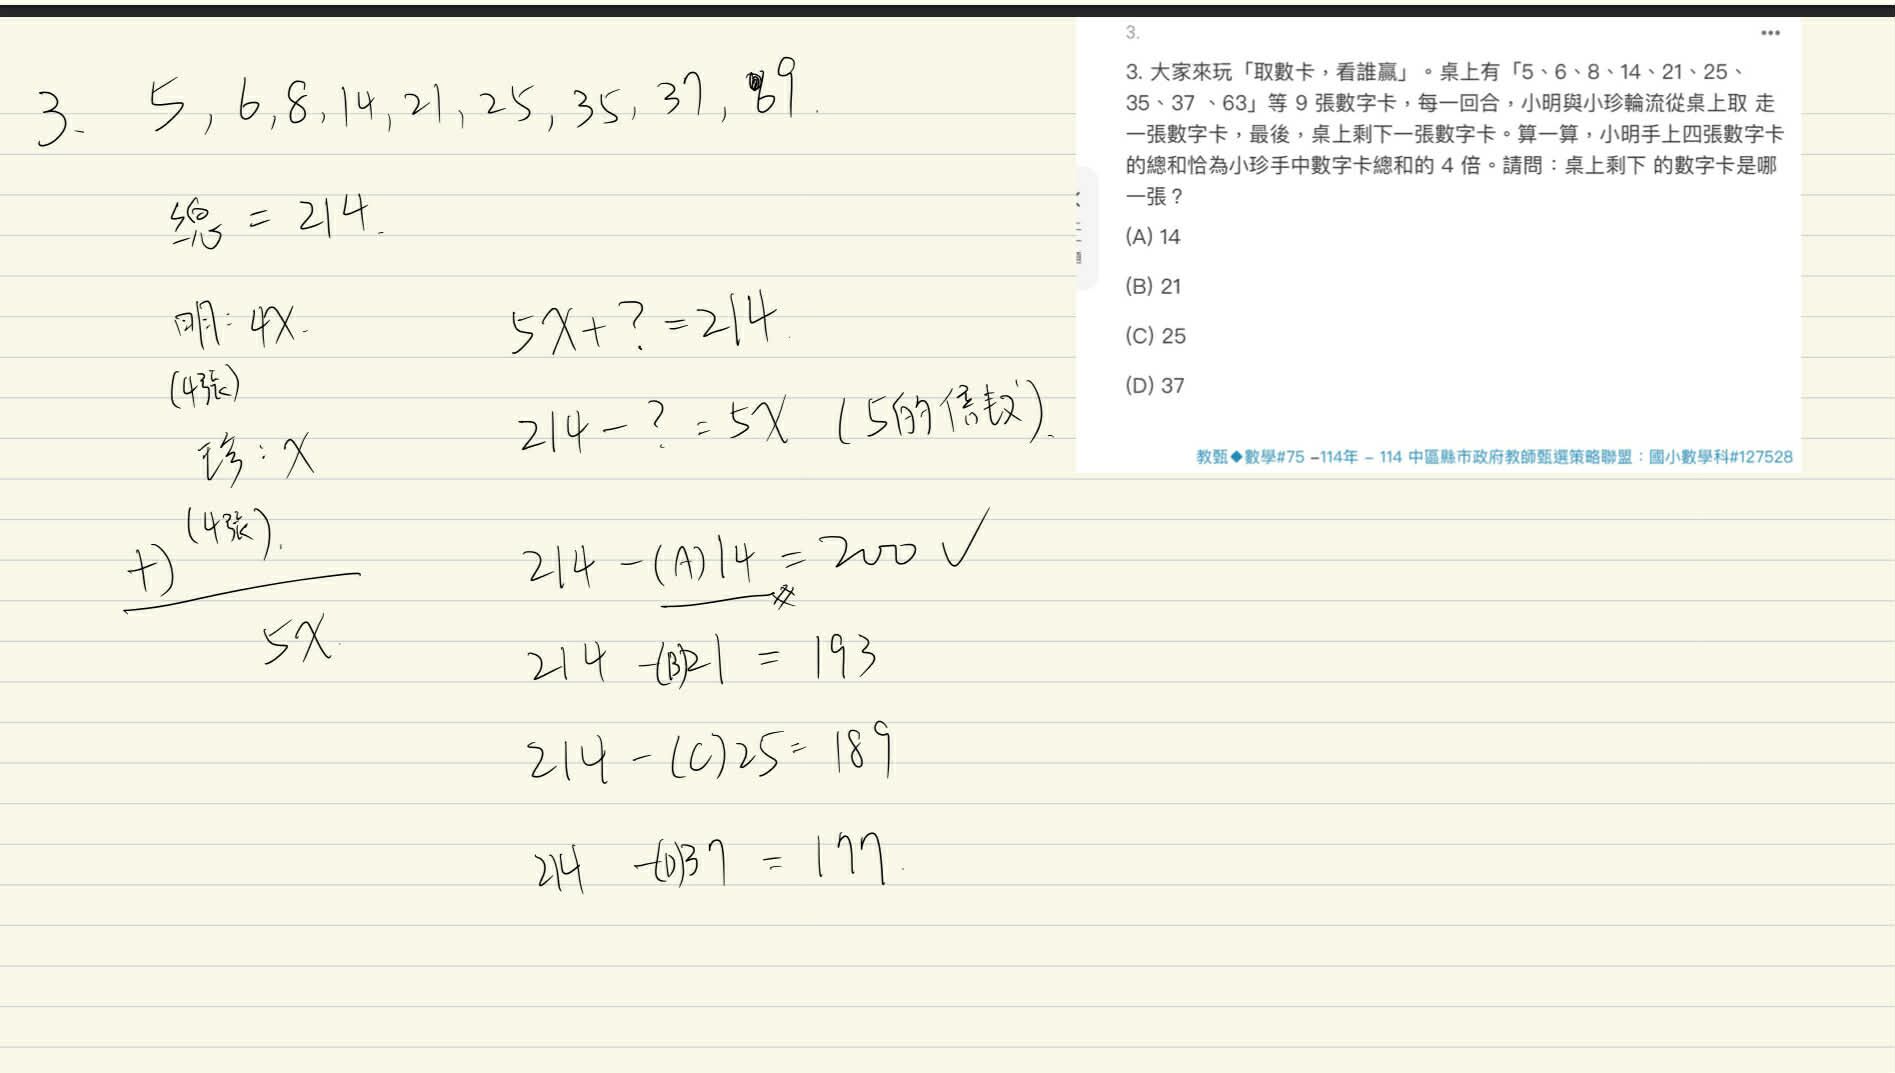 3. 5, 6, 8, 14, 21, 25, 35, 37, 69.
總 = 214.
明: 4X.
(4張)
珍: X
(4張).
+)
5X.
5X + ? = 214.
214 - ? = 5X (5的倍數).
214 - (A)14 = 200 ✓
214 - (B)21 = 193
214 - (C)25 = 189
214 - (D)37 = 177.
3.
3. 大家來玩「取數卡,看誰贏」。桌上有「5、6、8、14、21、25、
35、37 、63」等 9 張數字卡,每一回合,小明與小珍輪流從桌上取 走
一張數字卡,最後,桌上剩下一張數字卡。算一算,小明手上四張數字卡
的總和恰為小珍手中數字卡總和的 4 倍。請問:桌上剩下 的數字卡是哪
一張?
(A) 14
(B) 21
(C) 25
(D) 37
教甄◆數學#75 –114年 – 114 中區縣市政府教師甄選策略聯盟:國小數學科#127528